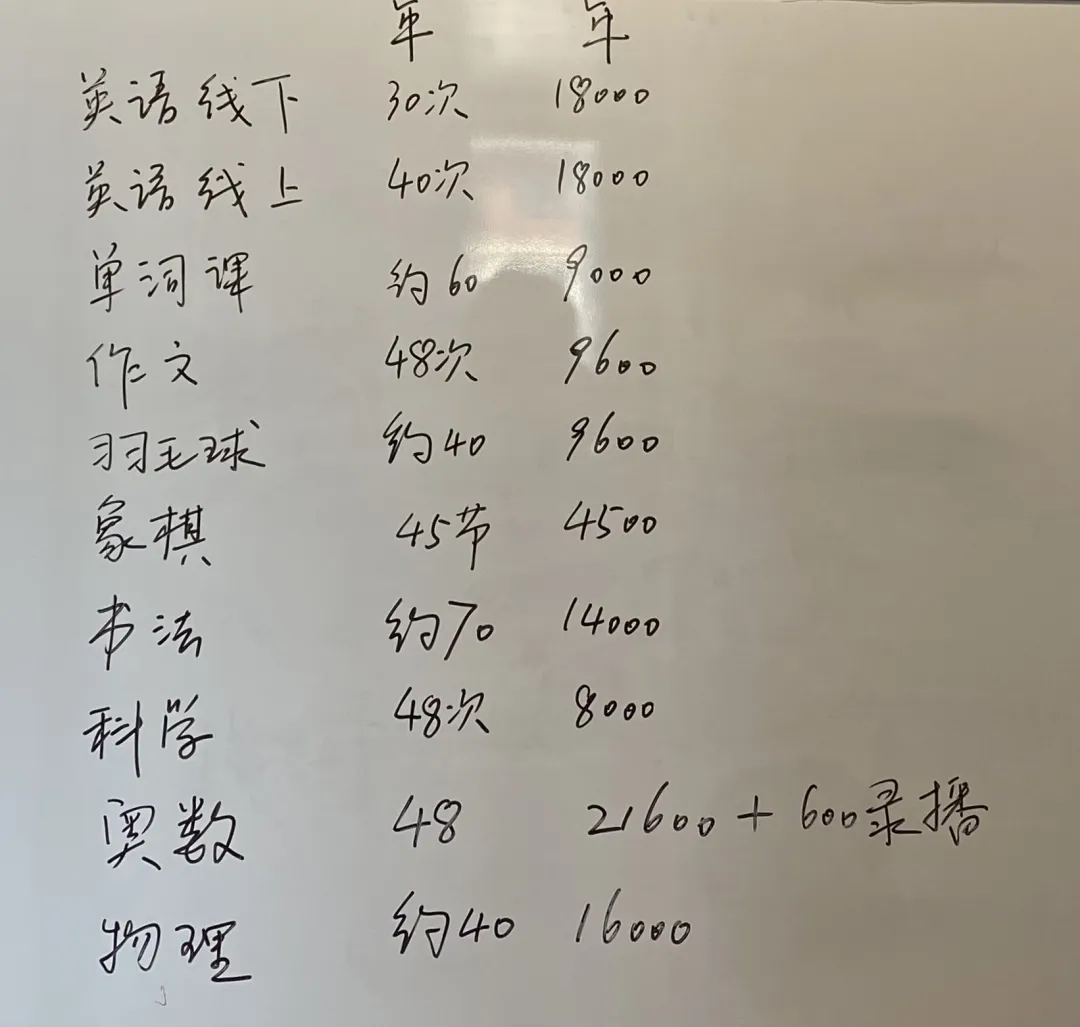 年 年
英语线下 30次 18000
英语线上 40次 18000
单词课 约60 9000
作文 48次 9600
羽毛球 约40 9600
象棋 45节 4500
书法 约70 14000
科学 48次 8000
奥数 48 21600+600录播
物理 约40 16000